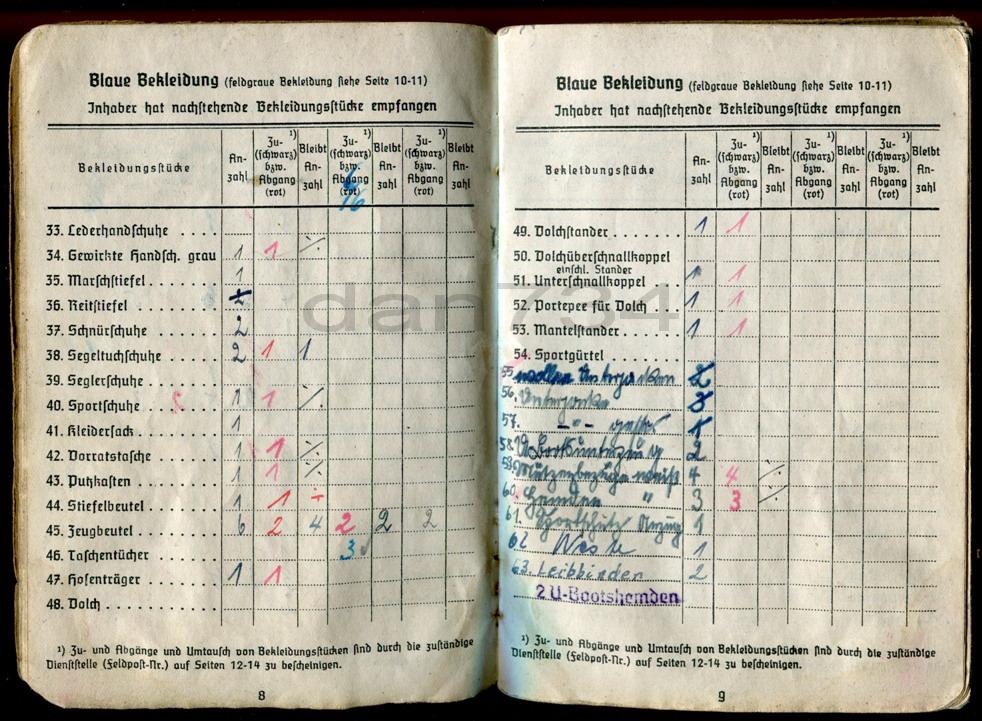 Blaue Bekleidung (feldgraue Bekleidung siehe Seite 10-11)
Inhaber hat nachstehende Bekleidungsstücke empfangen
Bekleidungsstücke | An-zahl | Zu-¹) (schwarz) bzw. Abgang (rot) | Bleibt An-zahl | Zu-¹) (schwarz) bzw. Abgang (rot) | Bleibt An-zahl | Zu-¹) (schwarz) bzw. Abgang (rot) | Bleibt An-zahl
33. Lederhandschuhe
34. Gewirkte Handsch. grau 1 1 ·/.
35. Marschstiefel 1
36. Reitstiefel
37. Schnürschuhe 2
38. Segeltuchschuhe 2 1 1
39. Seglerschuhe
40. Sportschuhe 1 1 ·/.
41. Kleidersack 1
42. Vorratstasche 1 1 ·/.
43. Putzkasten 1 1 ·/.
44. Stiefelbeutel 1 1 ÷
45. Zeugbeutel 6 2 4 2 2 2
46. Taschentücher 3
47. Hosenträger 1 1
48. Dolch
¹) Zu- und Abgänge und Umtausch von Bekleidungsstücken sind durch die zuständige
Dienststelle (Feldpost-Nr.) auf Seiten 12-14 zu bescheinigen.
8
Blaue Bekleidung (feldgraue Bekleidung siehe Seite 10-11)
Inhaber hat nachstehende Bekleidungsstücke empfangen
Bekleidungsstücke | An-zahl | Zu-¹) (schwarz) bzw. Abgang (rot) | Bleibt An-zahl | Zu-¹) (schwarz) bzw. Abgang (rot) | Bleibt An-zahl | Zu-¹) (schwarz) bzw. Abgang (rot) | Bleibt An-zahl
49. Dolchstander 1 1
50. Dolchüberschnallkoppel
einschl. Stander
51. Unterschnallkoppel 1 1
52. Portepee für Dolch 1 1
53. Mantelstander 1 1
54. Sportgürtel
55 Unterjacken 2
56. Unterjacke 3
57. -"-
58. 2
59. Mützenbezüge weiß 4 4 ·/.
60. Hemden " 3 3 ·/.
61. Anzug 1
62 Weste 1
63. Leibbinden 2
2 U-Bootshemden
¹) Zu- und Abgänge und Umtausch von Bekleidungsstücken sind durch die zuständige
Dienststelle (Feldpost-Nr.) auf Seiten 12-14 zu bescheinigen.
9
dan734